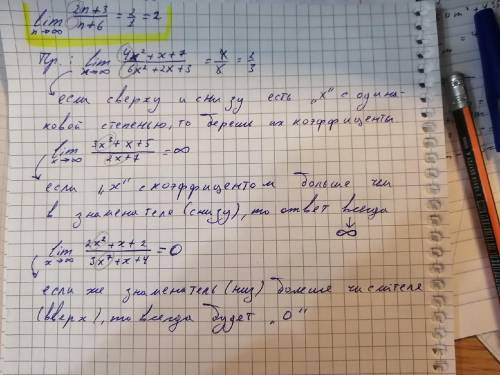 lim n→∞ 2n+3/n+6 = 2/1 = 2
Пр.: lim x→∞ 4x²+x+7/6x²+2x+3 = 4/6 = 2/3
если сверху и снизу есть „x" с одина-
ковой степенью, то берем их коэффициенты.
lim x→∞ 3x³+x+5/2x+7 = ∞
если „x" с коэффицентом больше чем
в знаменателе (снизу), то ответ всегда
∞
lim x→∞ 2x²+x+2/3x³+x+4 = 0
если же знаменатель (низ) больше числителя
(вверх), то всегда будет „0"